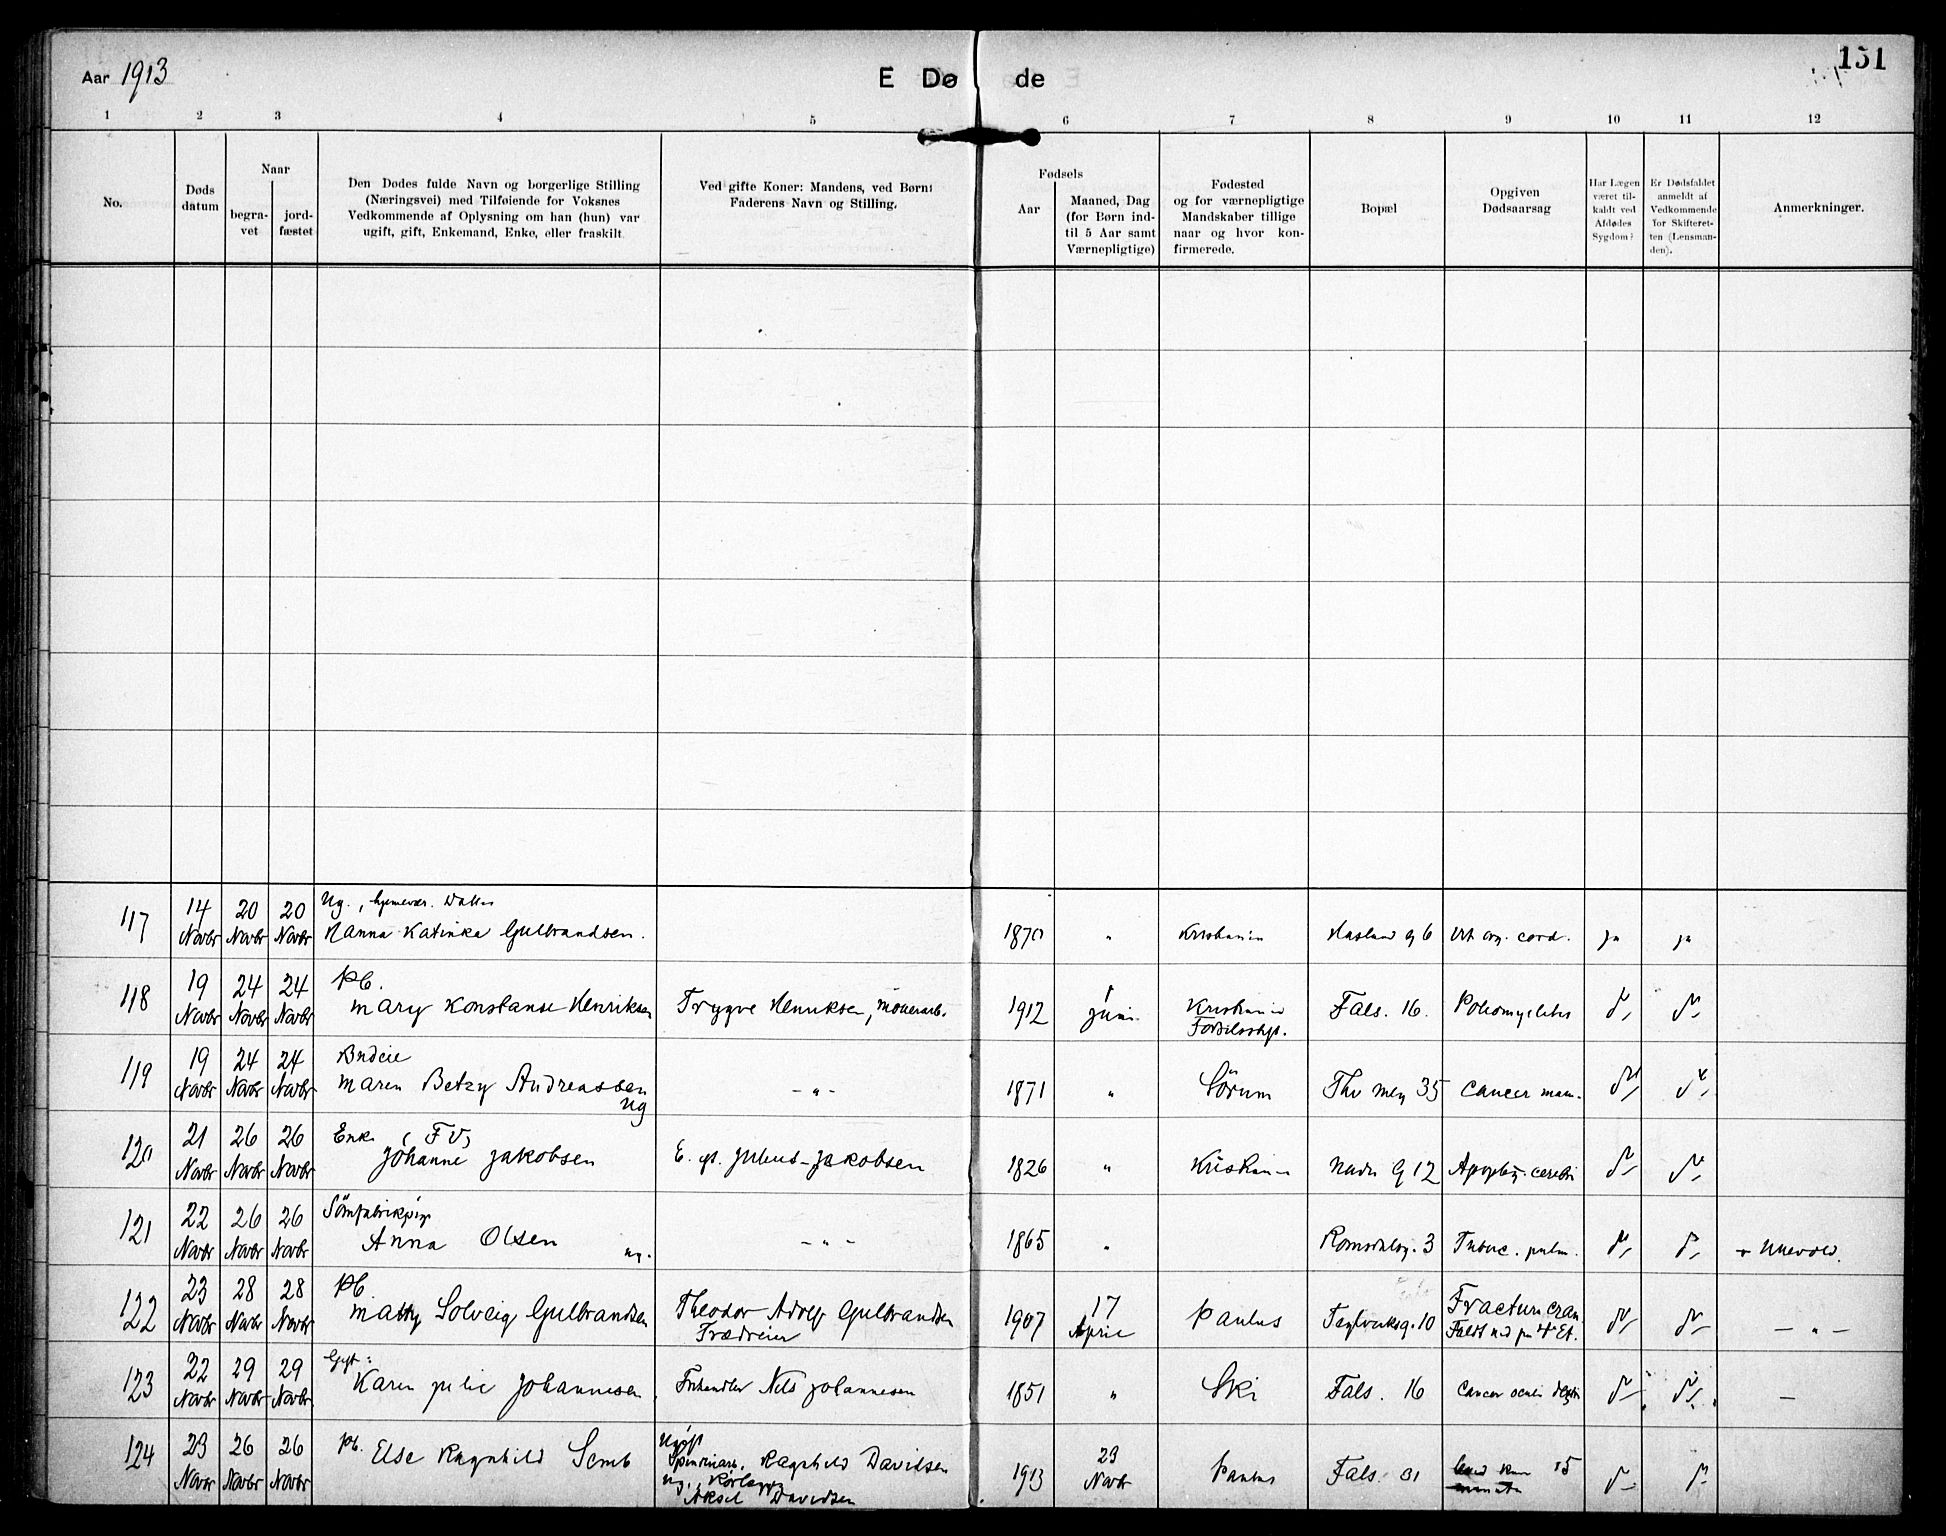 Aar 1913
E Dø de
151
1 2 3 4 5 6 7 8 9 10 11 12
No.
Døds
datum
Naar
begra-
vet
jord-
fæstet
Den Dødes fulde Navn og borgerlige Stilling
(Næringsvei) med Tilføiende for Voksnes
Vedkommende af Oplysning om han (hun) var
ugift, gift, Enkemand, Enke, eller fraskilt.
Ved gifte Koner: Mandens, ved Børn:
Faderens Navn og Stilling.
Fødsels
Aar
Maaned, Dag
(for Børn ind-
til 5 Aar samt
Værnepligtige)
Fødested
og for værnepligtige
Mandskaber tillige
naar og hvor kon-
firmerede.
Bopæl
Opgiven
Dødsaarsag
Har Lægen
været til-
kaldt ved
Afdødes
Sygdom?
Er Dødsfaldet
anmeldt af
Vedkommende
for Skifteret-
ten (Lensman-
den).
Anmerkninger.
117 14 Novbr 20 Novbr 20 Novbr
Ug.,
Hanna Katinka Gulbrandsen.
1870 " Kristiania 6 Vit. org. cord. ja ja
118 19 Novbr 24 Novbr 24 Novbr
Pb.
Mary Konstanse Henriksen
Trygve Henriksen,
1912 Juni Kristiania
Fødselsstift.
Fals. 16. Poliomyelitis
119 19 Novbr 24 Novbr 24 Novbr
Budeie
Maren Betzy Andreassen
ug
- " -
1871 " Sörum Thv Mey 35 Cancer mam.
120 21 Novbr 26 Novbr 26 Novbr
Enke (FV)
Johanne Jakobsen
E. ef. Julius Jakobsen
1826 " Kristiania 12 Apoplex. cerebri
121 22 Novbr 26 Novbr 26 Novbr
Sömfabrikpige
Anna Olsen ug.
- " -
1865 " Romsdalsg. 3 Tuberc. pulm. Ullevold.
122 23 Novbr 28 Novbr 28 Novbr
Pb.
Solveig Gulbrandsen
Theodor Adolf Gulbrandsen
Trædreier
1907 17 April Paulus Teglverksg. 10 Fractur. cran.
Faldt ned fra 4de Et.
- " -
123 22 Novbr 29 Novbr 29 Novbr
Gift:
Karen Julie Johannesen
Nils Johannesen
1851 " Ski Fals. 16 Cancer
124 23 Novbr 26 Novbr 26 Novbr
Pb. Else Ragnhild Semb
Ugift
Spinneriarb. Ragnhild Davidsen
ug.,
Aksel Davidsen
1913 23 Novbr Paulus Fals. 31 kun 15